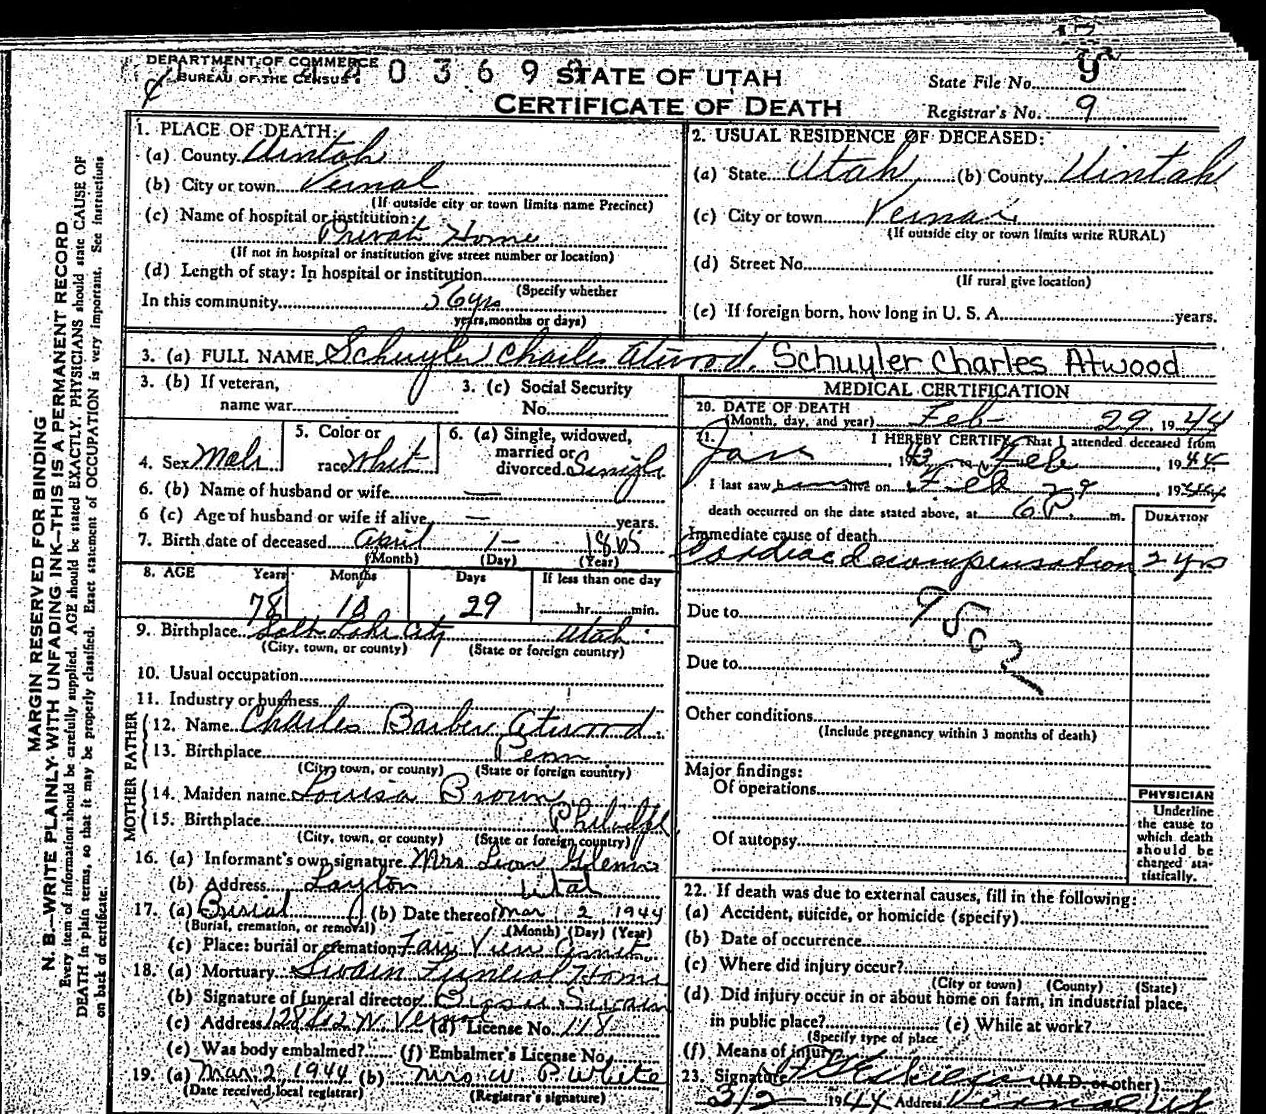 DEPARTMENT OF COMMERCE
BUREAU OF THE CENSUS
0 3 6 9
STATE OF UTAH
CERTIFICATE OF DEATH
State File No. 9
Registrar's No. 9
MARGIN RESERVED FOR BINDING
N. B.—WRITE PLAINLY WITH UNFADING INK—THIS IS A PERMANENT RECORD
Every item of information should be carefully supplied. AGE should be stated EXACTLY. PHYSICIANS should state CAUSE OF
DEATH in plain terms, so that it may be properly classified. Exact statement of OCCUPATION is very important. See instructions
on back of certificate.
1. PLACE OF DEATH:
(a) County Uintah
(b) City or town Vernal
(If outside city or town limits name Precinct)
(c) Name of hospital or institution:
Private Home
(If not in hospital or institution give street number or location)
(d) Length of stay: In hospital or institution
(Specify whether
In this community 56 yrs
years, months or days)
2. USUAL RESIDENCE OF DECEASED:
(a) State Utah (b) County Uintah
(c) City or town Vernal
(If outside city or town limits write RURAL)
(d) Street No.
(If rural give location)
(e) If foreign born, how long in U. S. A. years.
3. (a) FULL NAME Schuyler Charles Atwood. Schuyler Charles Atwood
3. (b) If veteran,
name war
3. (c) Social Security
No.
4. Sex Male
5. Color or
race White
6. (a) Single, widowed,
married or
divorced Single
6. (b) Name of husband or wife —
6 (c) Age of husband or wife if alive — years.
7. Birth date of deceased April 1 1865
(Month) (Day) (Year)
8. AGE Years Months Days If less than one day
78 10 29 hr. min.
9. Birthplace Salt Lake City Utah
(City, town, or county) (State or foreign country)
10. Usual occupation
11. Industry or business
FATHER
12. Name Charles Barber Atwood
13. Birthplace Penn
(City, town, or county) (State or foreign country)
MOTHER
14. Maiden name Louisa Brown
15. Birthplace
(City, town, or county) (State or foreign country)
16. (a) Informant's own signature Mrs
(b) Address Layton Utah
17. (a) Burial (b) Date thereof Mar 2 1944
(Burial, cremation, or removal) (Month) (Day) (Year)
(c) Place: burial or cremation Fair View
18. (a) Mortuary Swain Funeral Home
(b) Signature of funeral director Swain
(c) Address Vernal (d) License No. 118
(e) Was body embalmed? (f) Embalmer's License No.
19. (a) Mar 2, 1944 (b) Mrs. W. P. White
(Date received local registrar) (Registrar's signature)
MEDICAL CERTIFICATION
20. DATE OF DEATH
(Month, day, and year) Feb 29 1944
21. I HEREBY CERTIFY, That I attended deceased from
Jan, 1943 Feb, 1944
I last saw him alive on Feb 29, 1944
death occurred on the date stated above, at 6 P. m.
DURATION
Immediate cause of death
Cardiac decompensation 2 yrs
Due to
Due to
Other conditions
(Include pregnancy within 3 months of death)
Major findings:
Of operations
Of autopsy
PHYSICIAN
Underline
the cause to
which death
should be
charged sta-
tistically.
22. If death was due to external causes, fill in the following:
(a) Accident, suicide, or homicide (specify)
(b) Date of occurrence
(c) Where did injury occur?
(City or town) (County) (State)
(d) Did injury occur in or about home on farm, in industrial place,
in public place? (e) While at work?
(Specify type of place
(f) Means of injury
23. Signature (M.D. or other)
3/2 1944 Address